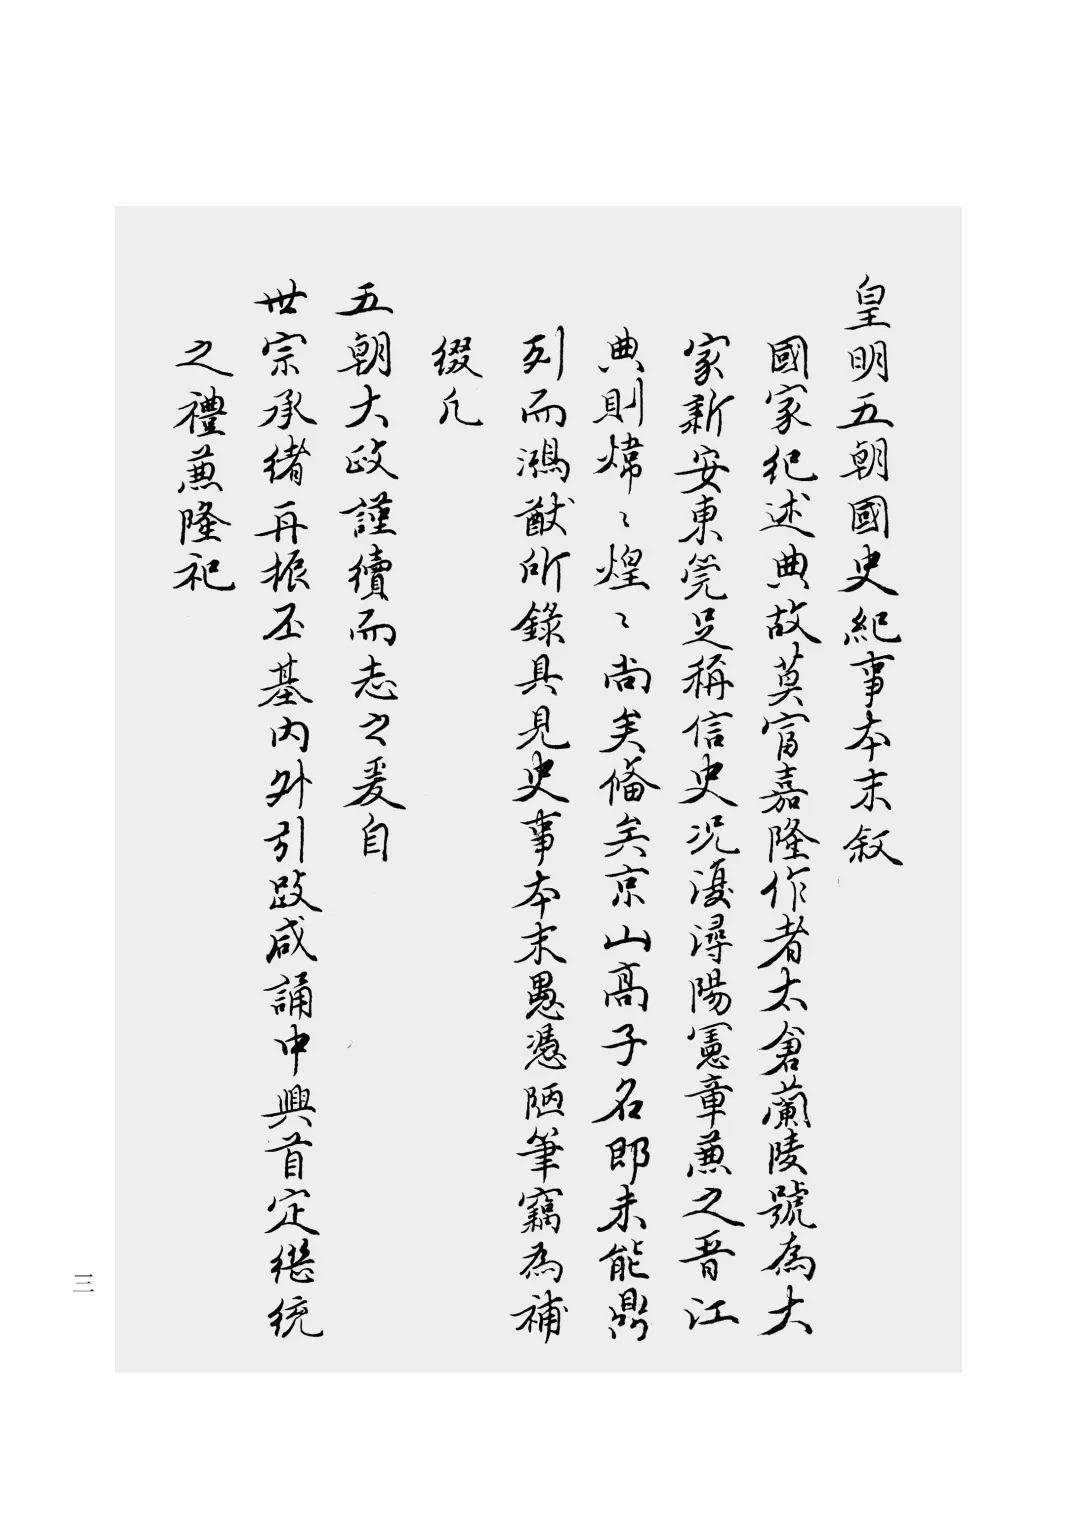 皇明五朝國史紀事本末叙
國家紀述典故莫富嘉隆作者太倉蘭陵號為大
家新安東莞足稱信史況復潯陽憲章兼之晋江
典則煒〻煌〻尚矣備矣京山高子名郎未能鼎
列而鴻猷所錄具見史事本末愚憑陋筆竊為補
綴凡
五朝大政謹續而志之爰自
世宗承緒再振丕基内外引跂咸誦中興首定繼統
之禮兼隆祀
三